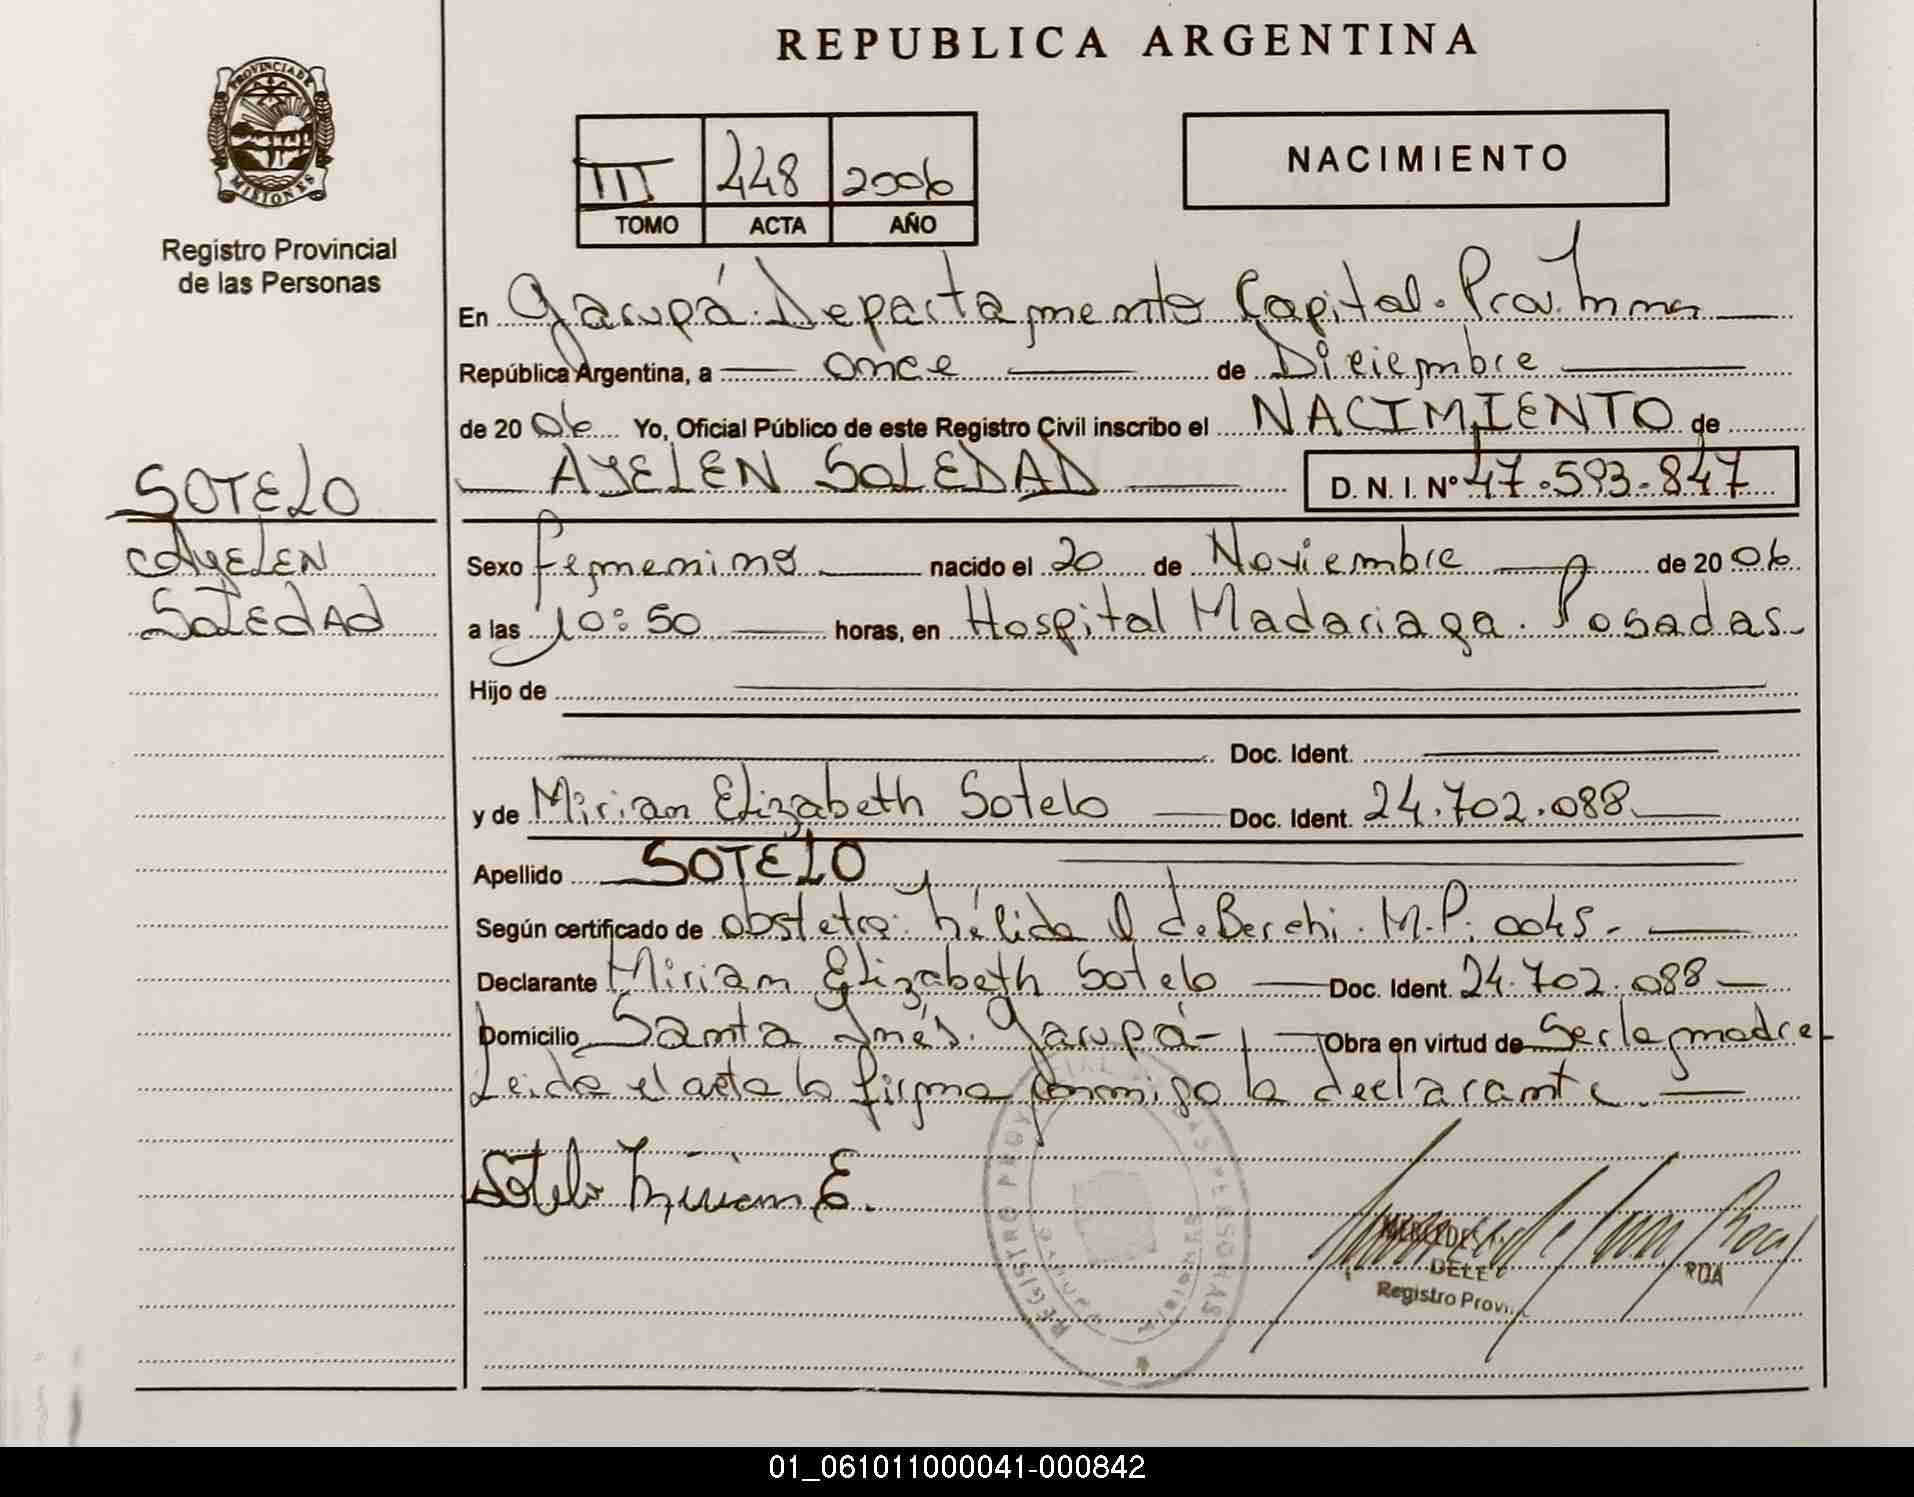 REPUBLICA ARGENTINA
PROVINCIA DE
MISIONES
Registro Provincial
de las Personas
III 448 2006
TOMO ACTA AÑO
NACIMIENTO
En Garupá. Departamento Capital. Prov. Mnes
República Argentina, a once de Diciembre
de 2006 Yo, Oficial Público de este Registro Civil inscribo el NACIMIENTO de
AYELEN SOLEDAD D. N. I. Nº 47.593.847
SOTELO
AYELEN
SOLEDAD
Sexo femenino nacido el 20 de Noviembre de 2006
a las 10:50 horas, en Hospital Madariaga. Posadas
Hijo de
Doc. Ident.
y de Mirian Elizabeth Sotelo Doc. Ident. 24.702.088
Apellido SOTELO
Según certificado de obstetra: Nélida de Berchi. M.P: 0045.
Declarante Miriam Elizabeth Sotelo Doc. Ident. 24.702.088
Domicilio Santa Inés. Garupá- Obra en virtud de Ser la madre
Leida el acta la firma conmigo la declarante.
Sotelo Miriam E.
REGISTRO PROV PERSONAS
MISIONES
MERCEDES
DELE
RDA
Registro Provin
01_061011000041-000842